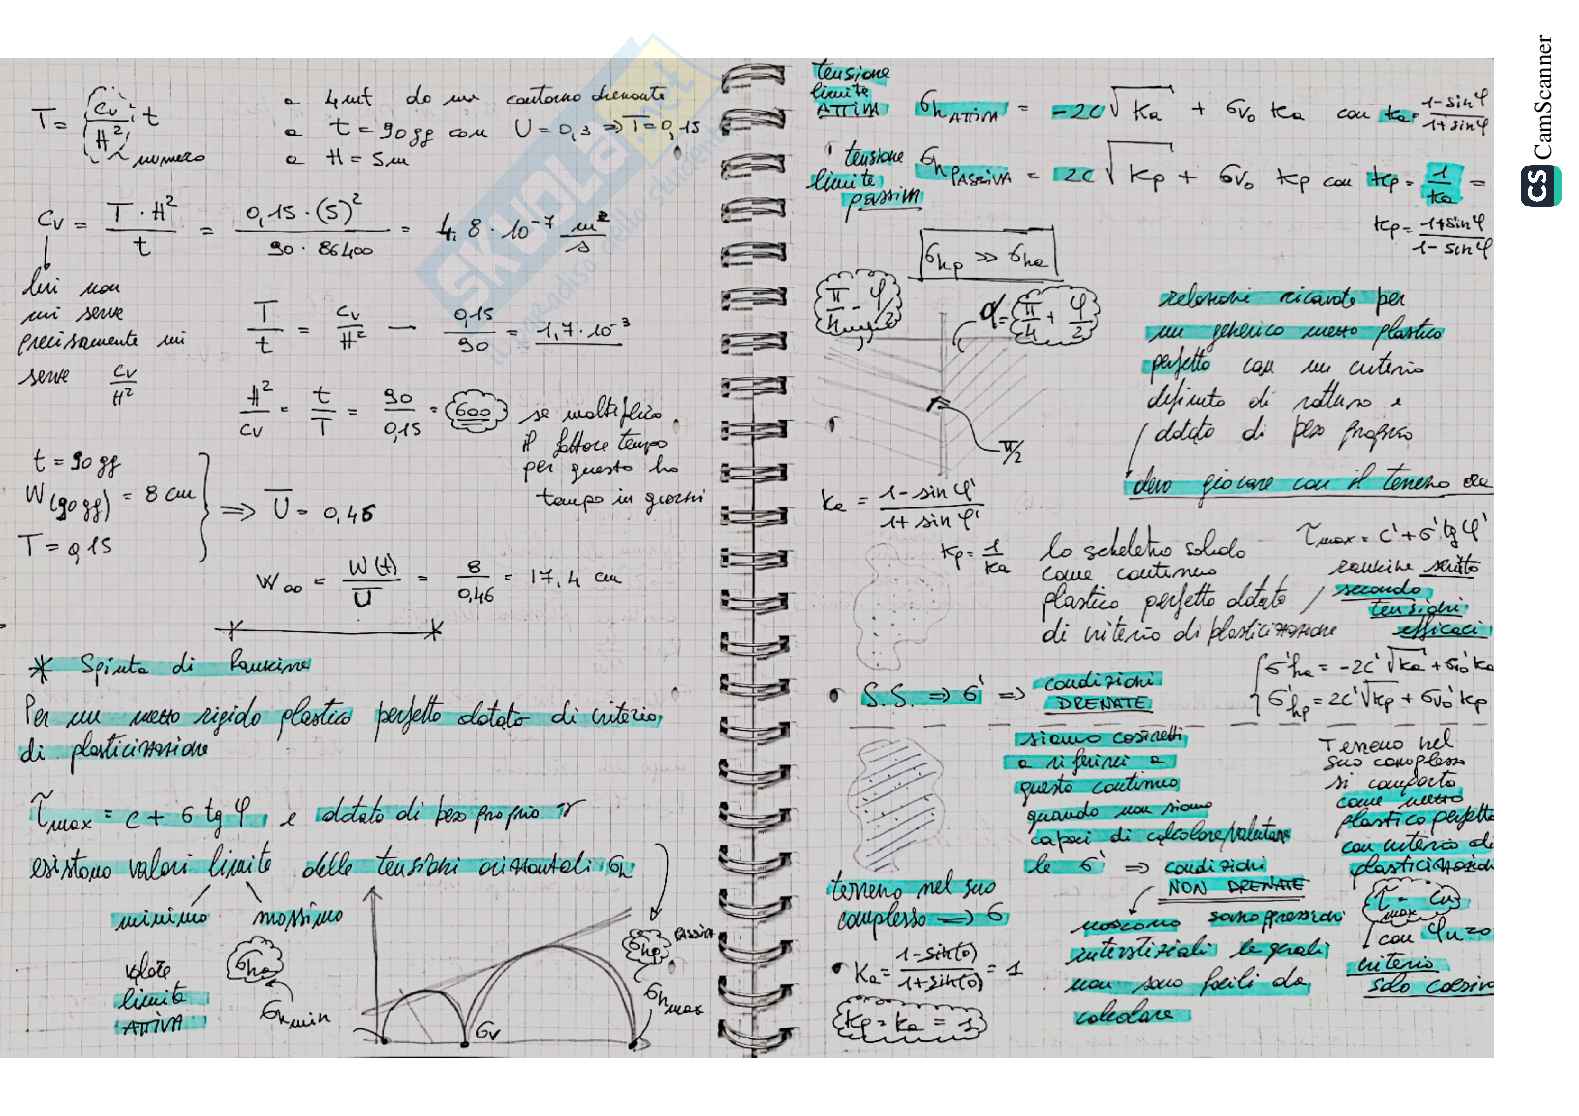 T = (cv / H²) · t
numero
a 4 mt da un contorno drenante
a t = 90 gg con U = 0,3 ⇒ T = 0,15
a H = 5 m
cv = T · H² / t = 0,15 · (5)² / 90 · 86400 = 4,8 · 10⁻⁷ m²/s
lui non
mi serve
precisamente mi
serve cv/H²
T/t = cv/H² — 0,15/90 = 1,7 · 10⁻³
H²/cv = t/T = 90/0,15 = 600
se moltiplico
il fattore tempo
per questo ho
tempo in giorni
t = 90 gg
W(90 gg) = 8 cm
T = 0,15
⇒ U = 0,46
W∞ = W(t)/U = 8/0,46 = 17,4 cm
* Spinta di Rankine
Per un mezzo rigido plastico perfetto dotato di criterio
di plasticizzazione
τmax = c + σ tg φ e dotato di peso proprio γ
esistono valori limite delle tensioni orizzontali σh
minimo massimo
valore
limite
ATTIVA
σha
σhmin
σv
σhp
PASSIVA
σhmax
tensione
limite
ATTIVA
σhATTIVA = -2c √Ka + σv₀ Ka con Ka = 1-sinφ / 1+sinφ
tensione
limite
passiva
σhPASSIVA = 2c √Kp + σv₀ Kp con Kp = 1/Ka =
Kp = 1+sinφ / 1-sinφ
σhp >> σha
π/4 - φ/2
α = π/4 + φ/2
π/2
relazioni ricavate per
un generico mezzo plastico
perfetto con un criterio
definito di rottura e
dotato di peso proprio
devo giocare con il terreno ora
Ka = 1-sin φ' / 1+sin φ'
Kp = 1/Ka
lo scheletro solido
come continuo
plastico perfetto dotato
di criterio di plasticizzazione
τmax = c' + σ' tg φ'
rankine scritto
secondo
tensioni
efficaci
S.S. ⇒ σ' ⇒ condizioni
DRENATE
σ'ha = -2c' √Ka + σ'v₀ Ka
σ'hp = 2c' √Kp + σv₀' Kp
siamo costretti
a riferirci a
questo continuo
quando non siamo
capaci di calcolare/valutare
le σ' ⇒ condizioni
NON DRENATE
nascono sovrappressioni
interstiziali le quali
non sono facili da
calcolare
Terreno nel
suo complesso
si comporta
come mezzo
plastico perfetto
con criterio di
plasticizzazione
τmax = cu
con φu = 0
criterio
solo coesivo
terreno nel suo
complesso ⇒ σ
Ka = 1-sin(0) / 1+sin(0) = 1
Kp = Ka = 1
SKUOLA.net
CS CamScanner